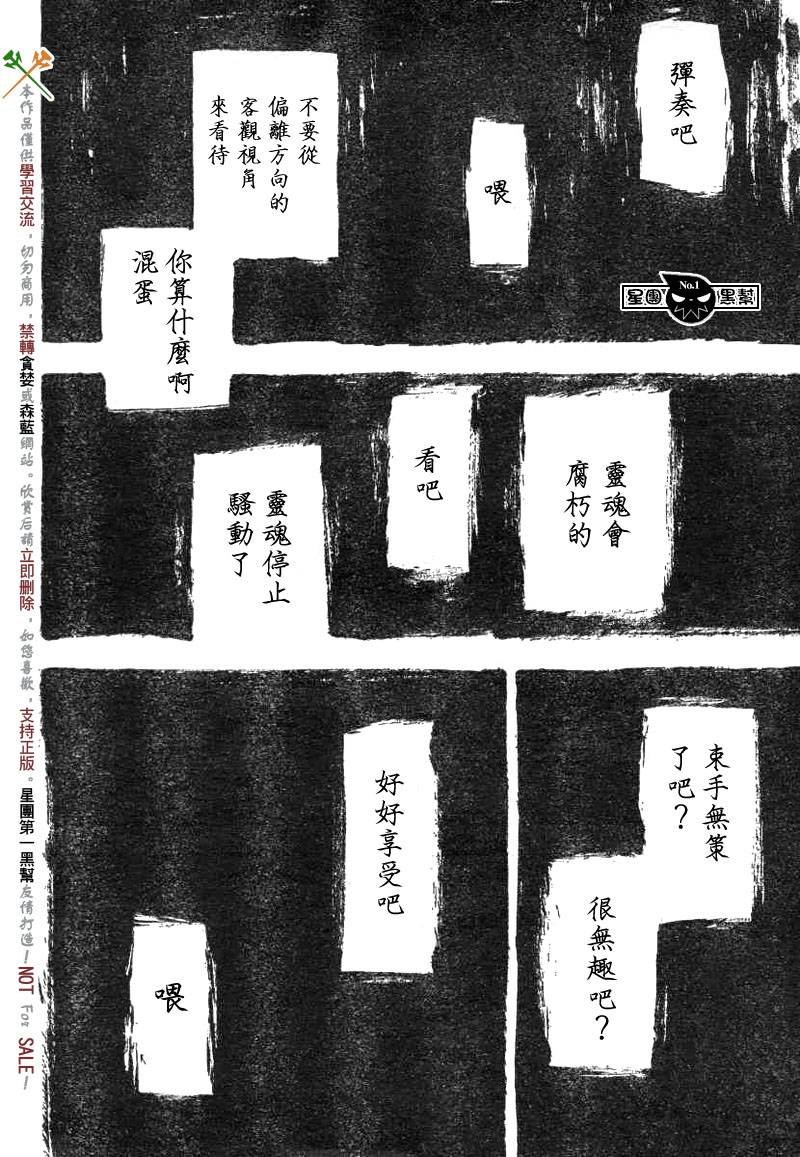 彈奏吧
喂
不要從
偏離方向的
客觀視角
來看待
你算什麼啊
混蛋
星團
No.1
黑幫
靈魂會
腐朽的
看吧
靈魂停止
騷動了
束手無策
了吧？
很無趣吧？
好好享受吧
喂
本作品僅供學習交流，切勿商用，禁轉貪婪或森藍網站。欣賞后請立即刪除，如您喜歡，支持正版。星團第一黑幫友情打造！NOT For SALE！